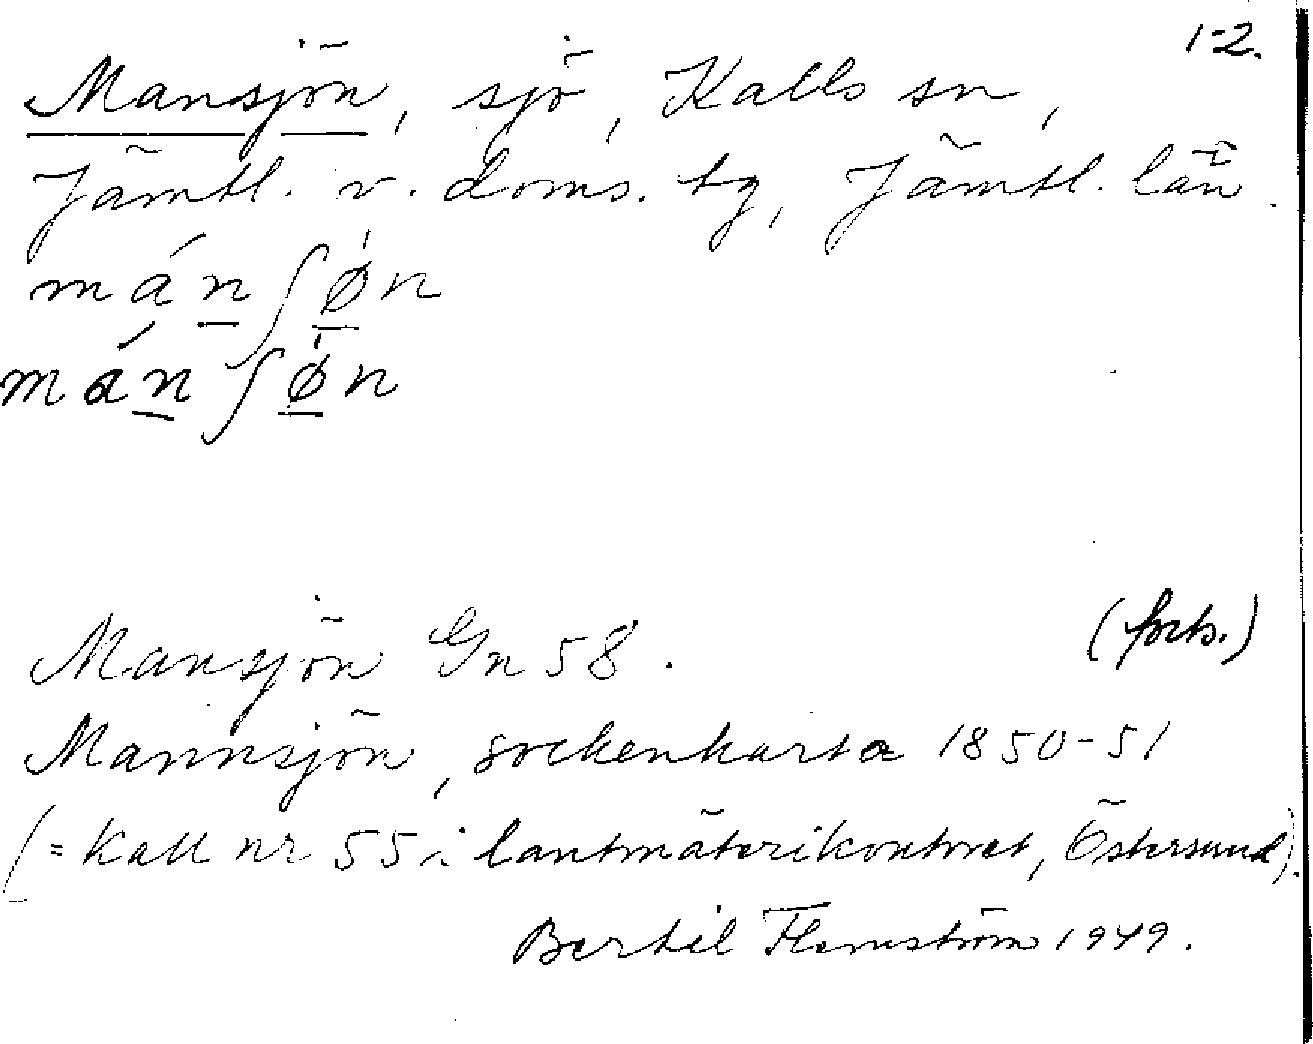 1-2.
Mansjön, sjö, Kalls sn,
Jämtl. v. doms. tg, Jämtl. län.
mánʃøn
mánʃøn
Mansjön Gn 58.
(forts.)
Mannsjön, sockenkarta 1850-51
(= Kall nr 55 i lantmäterikontoret, Östersund).
Bertil Flemström 1949.